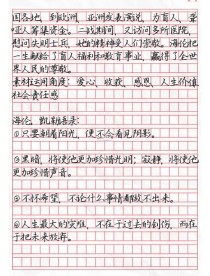 国各地，到欧洲、亚洲发表演说，为盲人、聋
哑人筹集资金。二战期间，又访问多所医院，
慰问失明士兵，她的精神受人们崇敬。海伦把
一生献给了盲人福利和教育事业，赢得了全世
界人民的尊敬。
素材立意角度：爱心、收获、感恩、人生价值
社会责任感
海伦·凯勒语录：
①只要朝着阳光，便不会看见阴影。
②黑暗，将使他更加珍惜光明；寂静，将使他
更加珍惜声音。
③不怀希望，不论什么事情都做不出来。
④人生最大的灾难，不在于过去的创伤，而在
于把未来放弃。